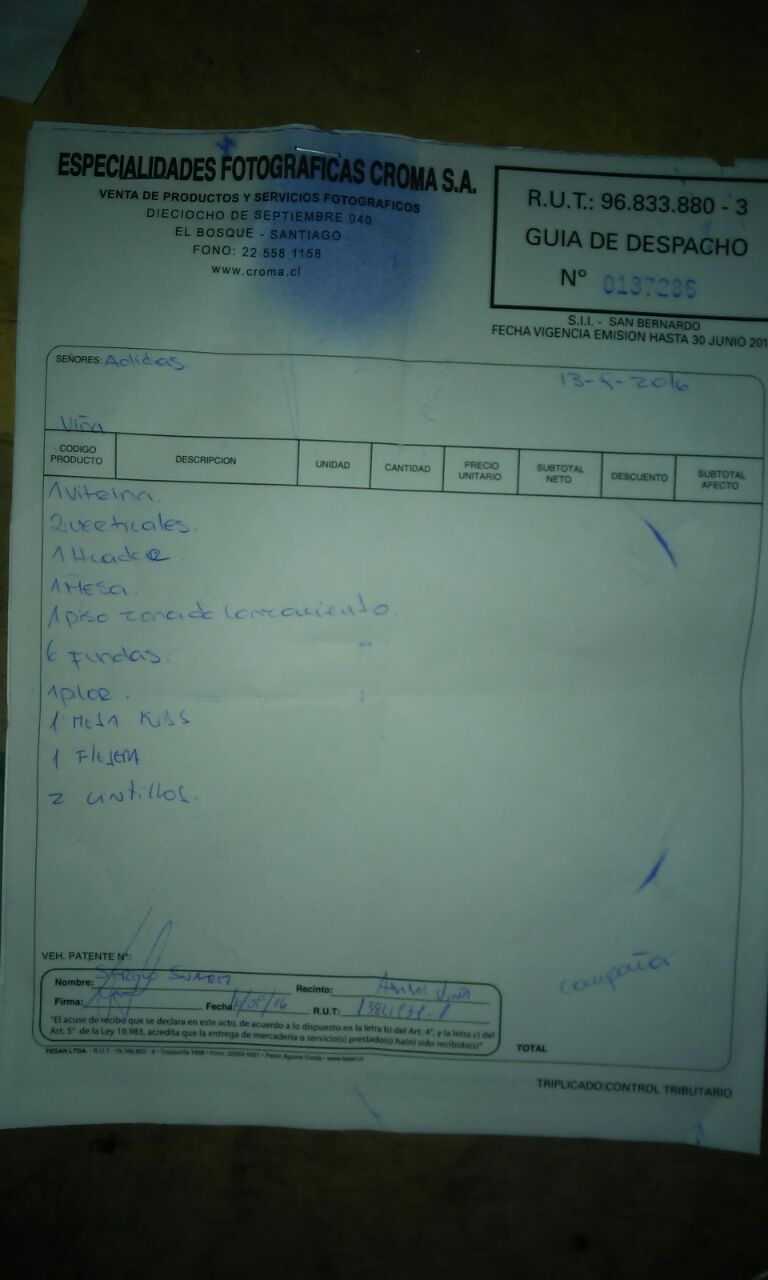 ESPECIALIDADES FOTOGRAFICAS CROMA S.A.
VENTA DE PRODUCTOS Y SERVICIOS FOTOGRAFICOS
DIECIOCHO DE SEPTIEMBRE 040
EL BOSQUE - SANTIAGO
FONO: 22 558 1158
www.croma.cl
R.U.T.: 96.833.880 - 3
GUIA DE DESPACHO
Nº 0137286
S.I.I. - SAN BERNARDO
FECHA VIGENCIA EMISION HASTA 30 JUNIO 201
SEÑORES: Adidas.
2016
Viña
CODIGO PRODUCTO DESCRIPCION UNIDAD CANTIDAD PRECIO UNITARIO SUBTOTAL NETO DESCUENTO SUBTOTAL AFECTO
1 vitrina.
2 verticales.
1 Header
1 Mesa.
1 piso zona de lanzamiento.
6 Fundas.
1
1 MESA KIDS
1
2 cintillos.
VEH. PATENTE Nº:
Nombre: Sergio Suarez Recinto: Viña
Firma: Fecha: /16 R.U.T.:
"El acuse de recibo que se declara en este acto, de acuerdo a lo dispuesto en la letra b) del Art. 4°, y la letra c) del
Art. 5° de la Ley 19.983, acredita que la entrega de mercaderia o servicio(s) prestado(s) ha(n) sido recibido(s)"
campaña
TOTAL
FESAN LTDA.
TRIPLICADO:CONTROL TRIBUTARIO